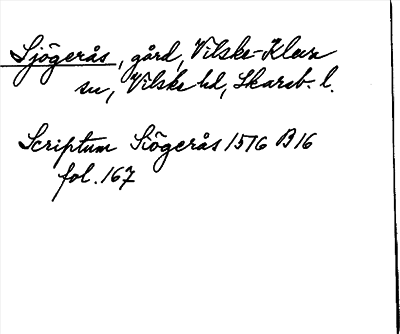 Sjögerås, gård, Vilske-Kleva
sn, Vilske hd, Skarab. l.
Scriptum Siögerås 1576 B16
fol. 167